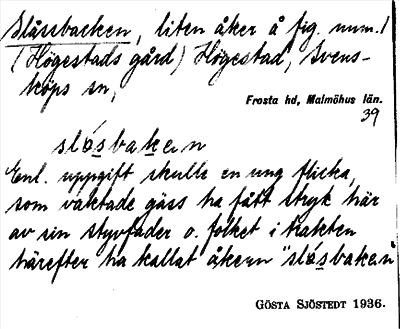 Slåssbacken, liten åker å fig. num. 1
(Högestads gård) Högestad, Svens-
köps sn,
Frosta hd, Malmöhus län.
39
slåsbakeṇ
Enl. uppgift skulle en ung flicka,
som vaktade gäss ha fått stryk här
av sin styvfader o. folket i trakten
härefter ha kallat åkern "slåsbaken"
GÖSTA SJÖSTEDT 1936.